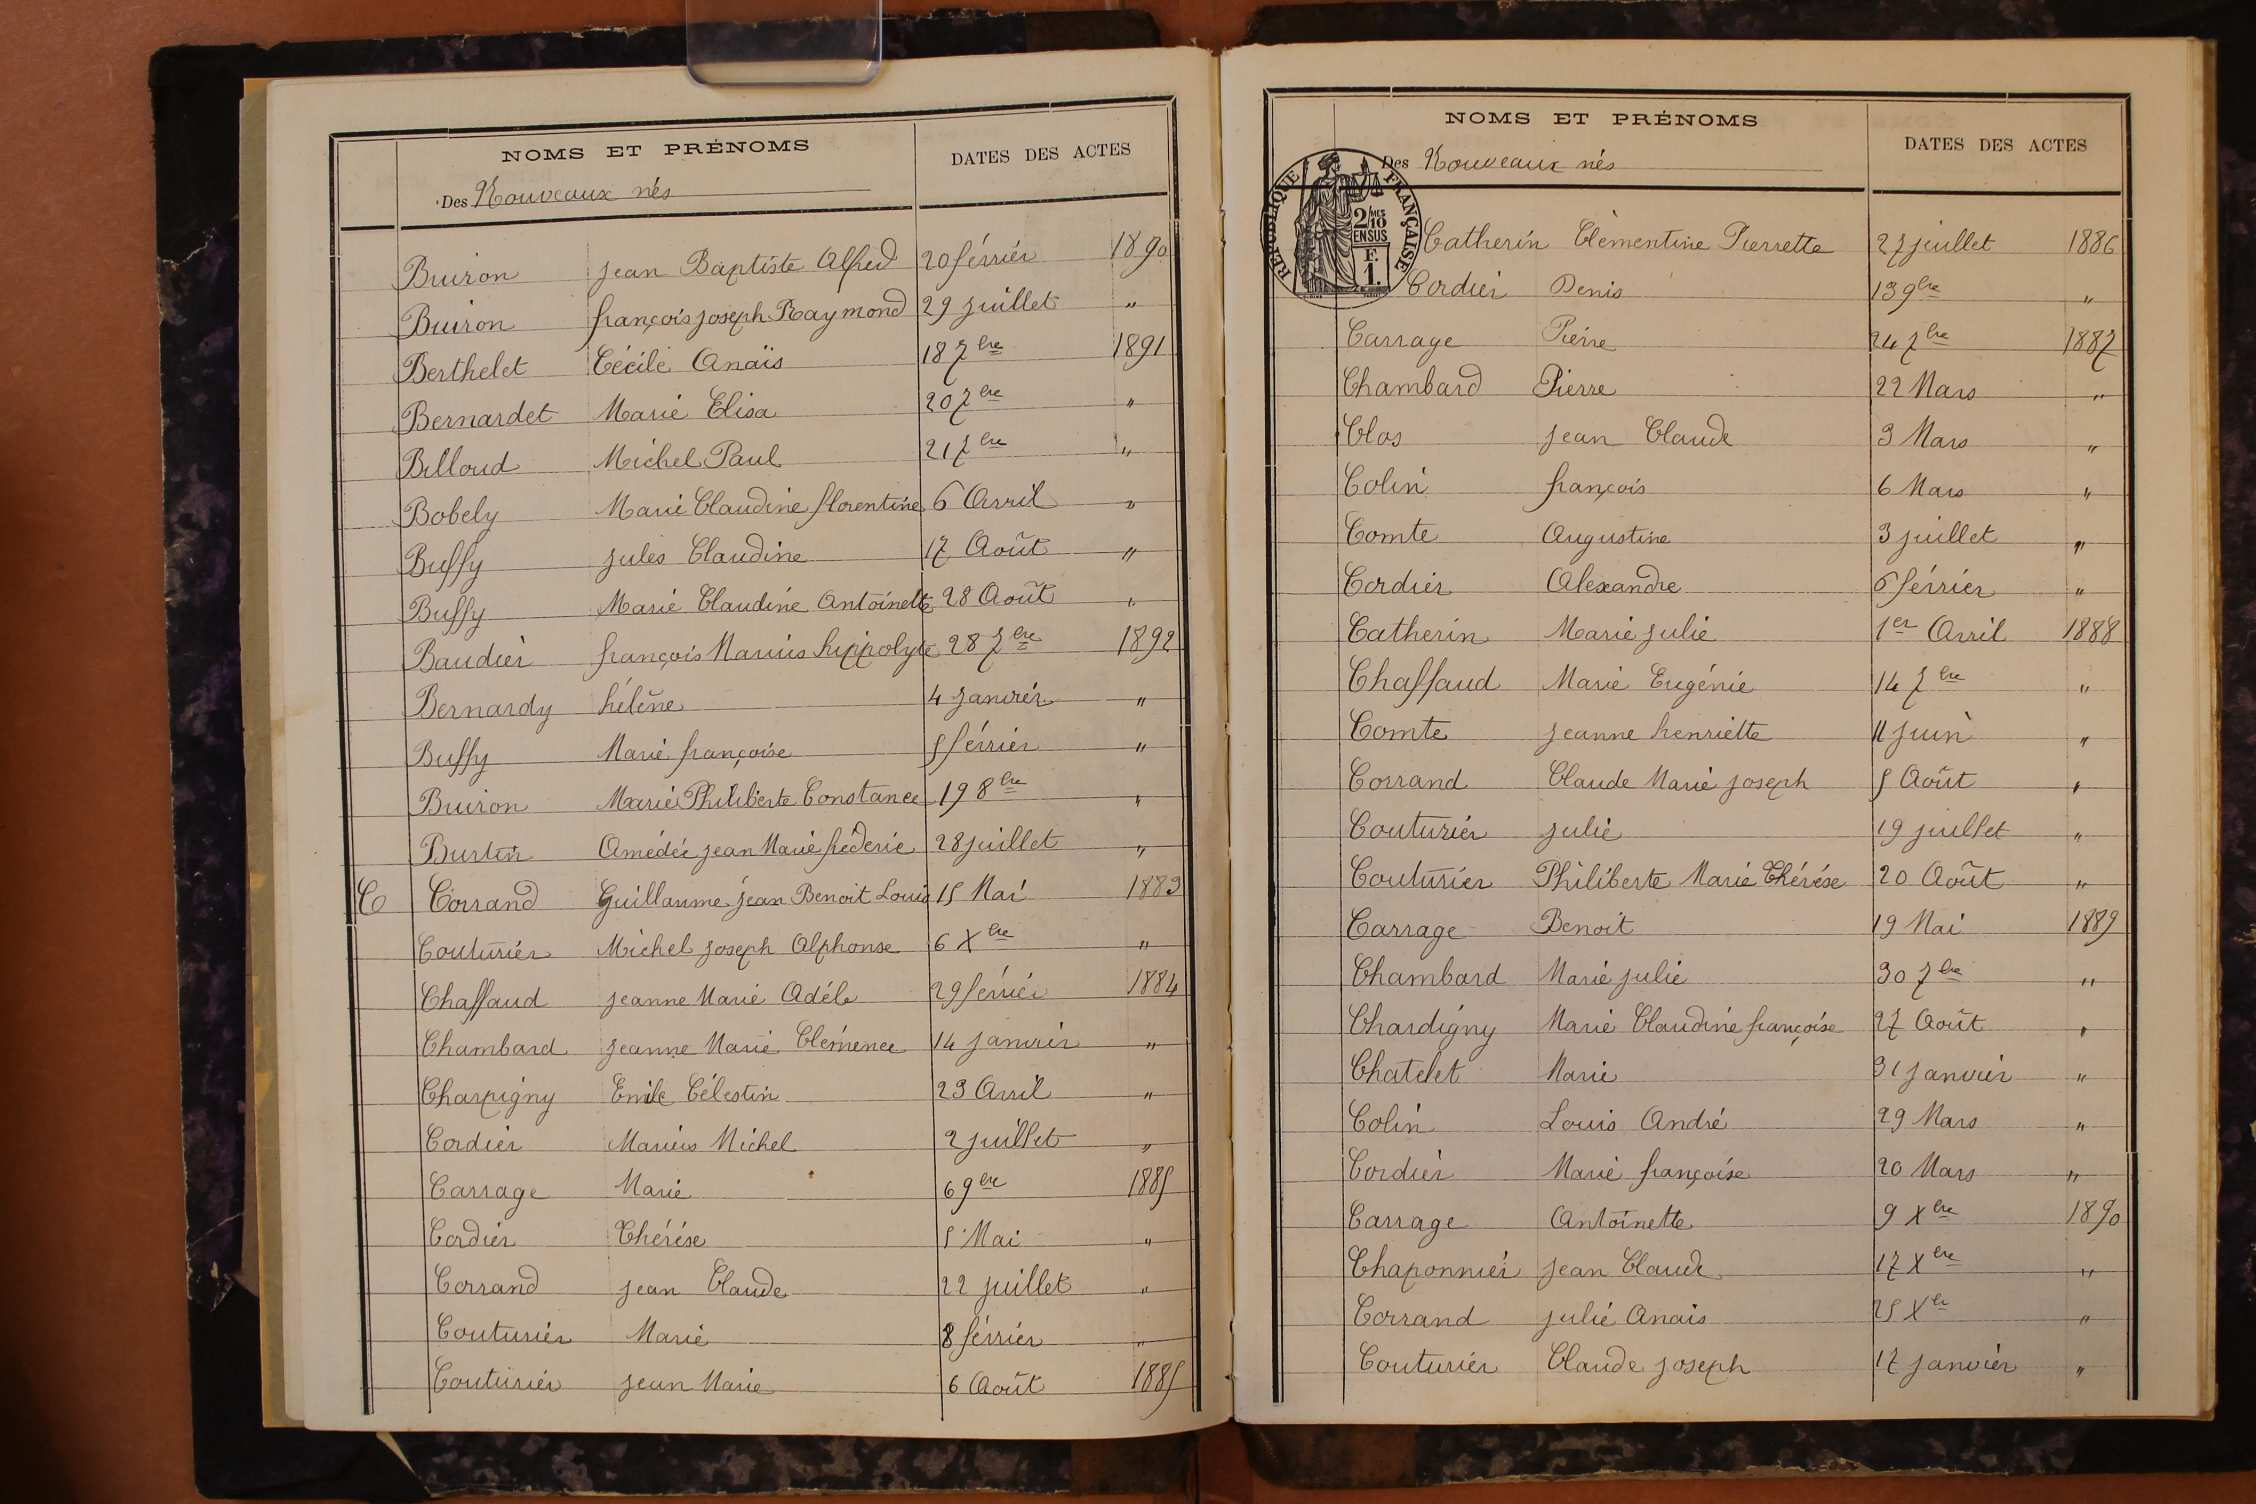 NOMS ET PRÉNOMS DATES DES ACTES
Des Nouveaux nés
Buiron jean Baptiste Alfred 20 février 1890
Buiron françois joseph Raymond 29 juillet "
Berthelet Cécile Anaïs 18 7bre 1891
Bernardet Marie Elisa 20 7bre "
Billoud Michel Paul 21 7bre "
Bobely Marie Claudine florentine 6 Avril "
Buffy jules Claudine 17 Août "
Buffy Marie Claudine Antoinette 28 Août "
Baudier françois Marius hippolyte 28 7bre 1892
Bernardy hélène 4 janvier "
Buffy Marie françoise 5 février "
Buiron Marie Philiberte Constance 19 8bre "
Burtin Amédée jean Marie fréderic 28 juillet "
C Corrand Guillaume jean Benoit Louis 15 Mai 1883
Couturier Michel joseph Alphonse 6 Xbre "
Chaffaud jeanne Marie Adèle 29 février 1884
Chambard jeanne Marie Clémence 14 janvier "
Charpigny Emile Célestin 23 Avril "
Cordier Marius Michel 2 juillet "
Carrage Marie 6 9bre 1885
Cordier Thérèse 5 Mai "
Corrand jean Claude 22 juillet "
Couturier Marie 8 février "
Couturier jean Marie 6 Août 1885
NOMS ET PRÉNOMS DATES DES ACTES
Des Nouveaux nés
RÉPUBLIQUE FRANÇAISE
2/10 MES
EN SUS
F.
1.
Catherin Clémentine Pierrette 27 juillet 1886
Cordier Denis 13 9bre "
Carrage Pierre 24 7bre 1887
Chambard Pierre 22 Mars "
Clos jean Claude 3 Mars "
Colin françois 6 Mars "
Comte Augustine 3 juillet "
Cordier Alexandre 6 février "
Catherin Marie julie 1er Avril 1888
Chaffaud Marie Eugénie 14 7bre "
Comte jeanne henriette 11 juin "
Corrand Claude Marie joseph 5 Août "
Couturier julie 19 juillet "
Couturier Philiberte Marie Thérèse 20 Août "
Carrage Benoit 19 Mai 1889
Chambard Marie julie 30 7bre "
Chardigny Marie Claudine françoise 27 Août "
Chatelet Marie 31 janvier "
Colin Louis André 29 Mars "
Cordier Marie françoise 20 Mars "
Carrage Antoinette 9 Xbre 1890
Chaponnier jean Claude 17 Xbre "
Corrand julie Anais 25 Xbr "
Couturier Claude joseph 17 janvier "